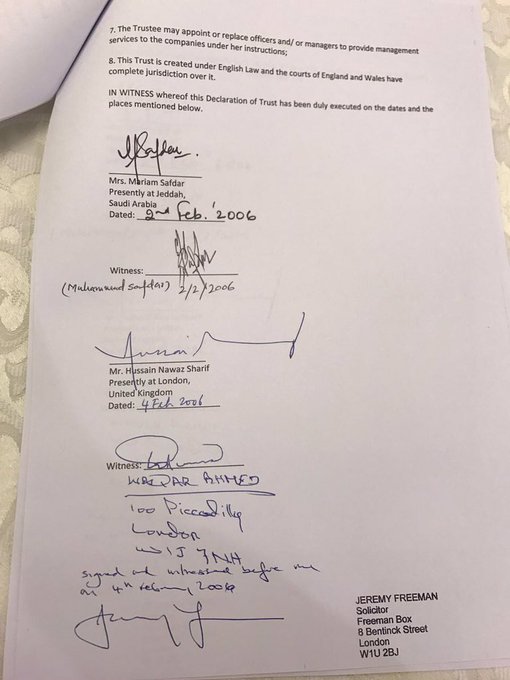 7. The Trustee may appoint or replace officers and/ or managers to provide management
services to the companies under her instructions;
8. This Trust is created under English Law and the courts of England and Wales have
complete jurisdiction over it.
IN WITNESS whereof this Declaration of Trust has been duly executed on the dates and the
places mentioned below.
MSafdar.
Mrs. Mariam Safdar
Presently at Jeddah,
Saudi Arabia
Dated: 2nd Feb. '2006
Witness:
(Muhammad Safdar) 2/2/2006
Mr. Hussain Nawaz Sharif
Presently at London,
United Kingdom
Dated: 4 Feb 2006
Witness:
WAQAR AHMED
100 Piccadilly
London
W1J 7NH
signed and witnessed before me
on 4th February 2006
JEREMY FREEMAN
Solicitor
Freeman Box
8 Bentinck Street
London
W1U 2BJ